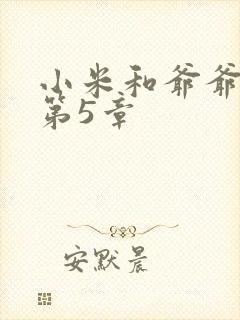 小米和爷爷
第5章
安默晨